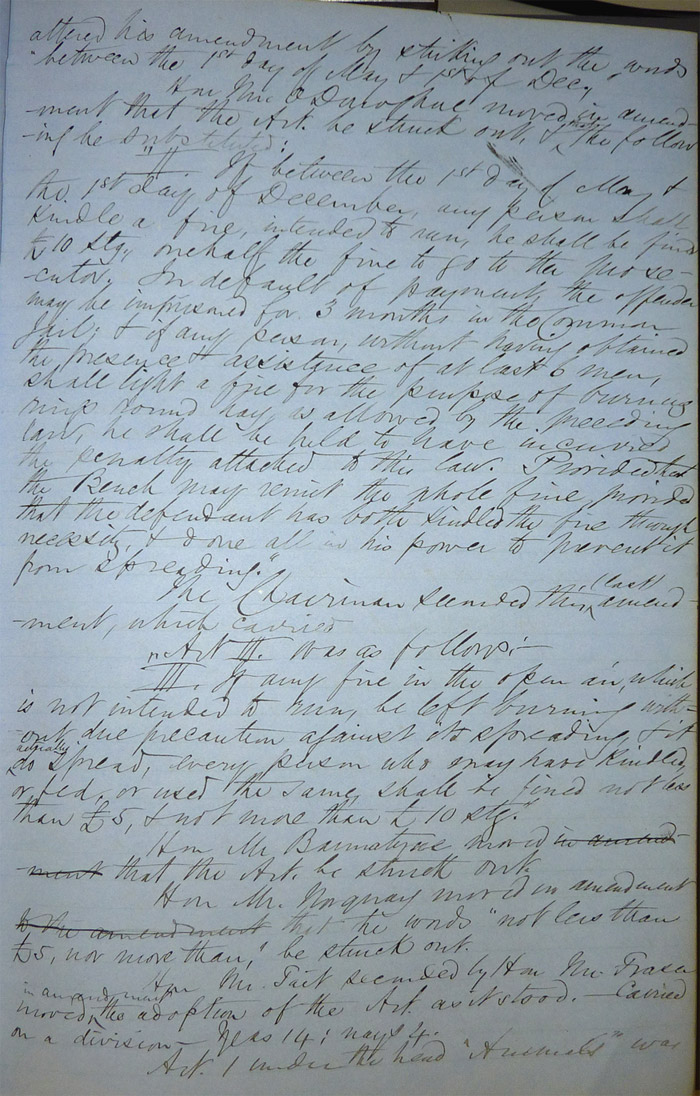 altered his amendment by striking out the words
"between the 1st day of May & 1st of Dec.
Hon Mr. O'Donoghue moved in amend-
ment that the Art. be struck out, & that the follow
-ing be substituted:
"II If between the 1st day of May &
the 1st day of December, any person shall
kindle a fire, intended to run, he shall be fined
£10 Stg., onehalf the fine to go to the prose-
-cutor. In default of payment, the offender
may be imprisoned for 3 months in the Common
Jail; & if any person, without having obtained
the presence & assistance of at least 6 men,
shall light a fire for the purpose of burning
rings round hay as allowed by the preceding
law, he shall be held to have incurred
the penalty attached to this law. Provided that
the Bench may remit the whole fine, provided
that the defendant has both kindled the fire through
necessity, & done all in his power to prevent it
from spreading."
The Chairman seconded this last amend-
-ment, which carried
"Art III. was as follows:—
III. If any fire in the open air, which
is not intended to run, be left burning with-
-out due precaution against its spreading, & it
do actually spread, every person who may have kindled,
or fed, or used the same, shall be fined not less
than £5, & not more than £10 stg."
Hon Mr Bannatyne moved in amend-
-ment that the Art. be struck out.
Hon Mr. Norquay moved in amendment
to the amendment that the words "not less than
£5, nor more than," be struck out.
Hon Mr. Tait seconded by Hon Mr. Fraser
moved, in amendment the adoption of the Art. as it stood. — Carried
on a division — Yeas 14: nays 4.
Art. 1 under the head "Animals" was